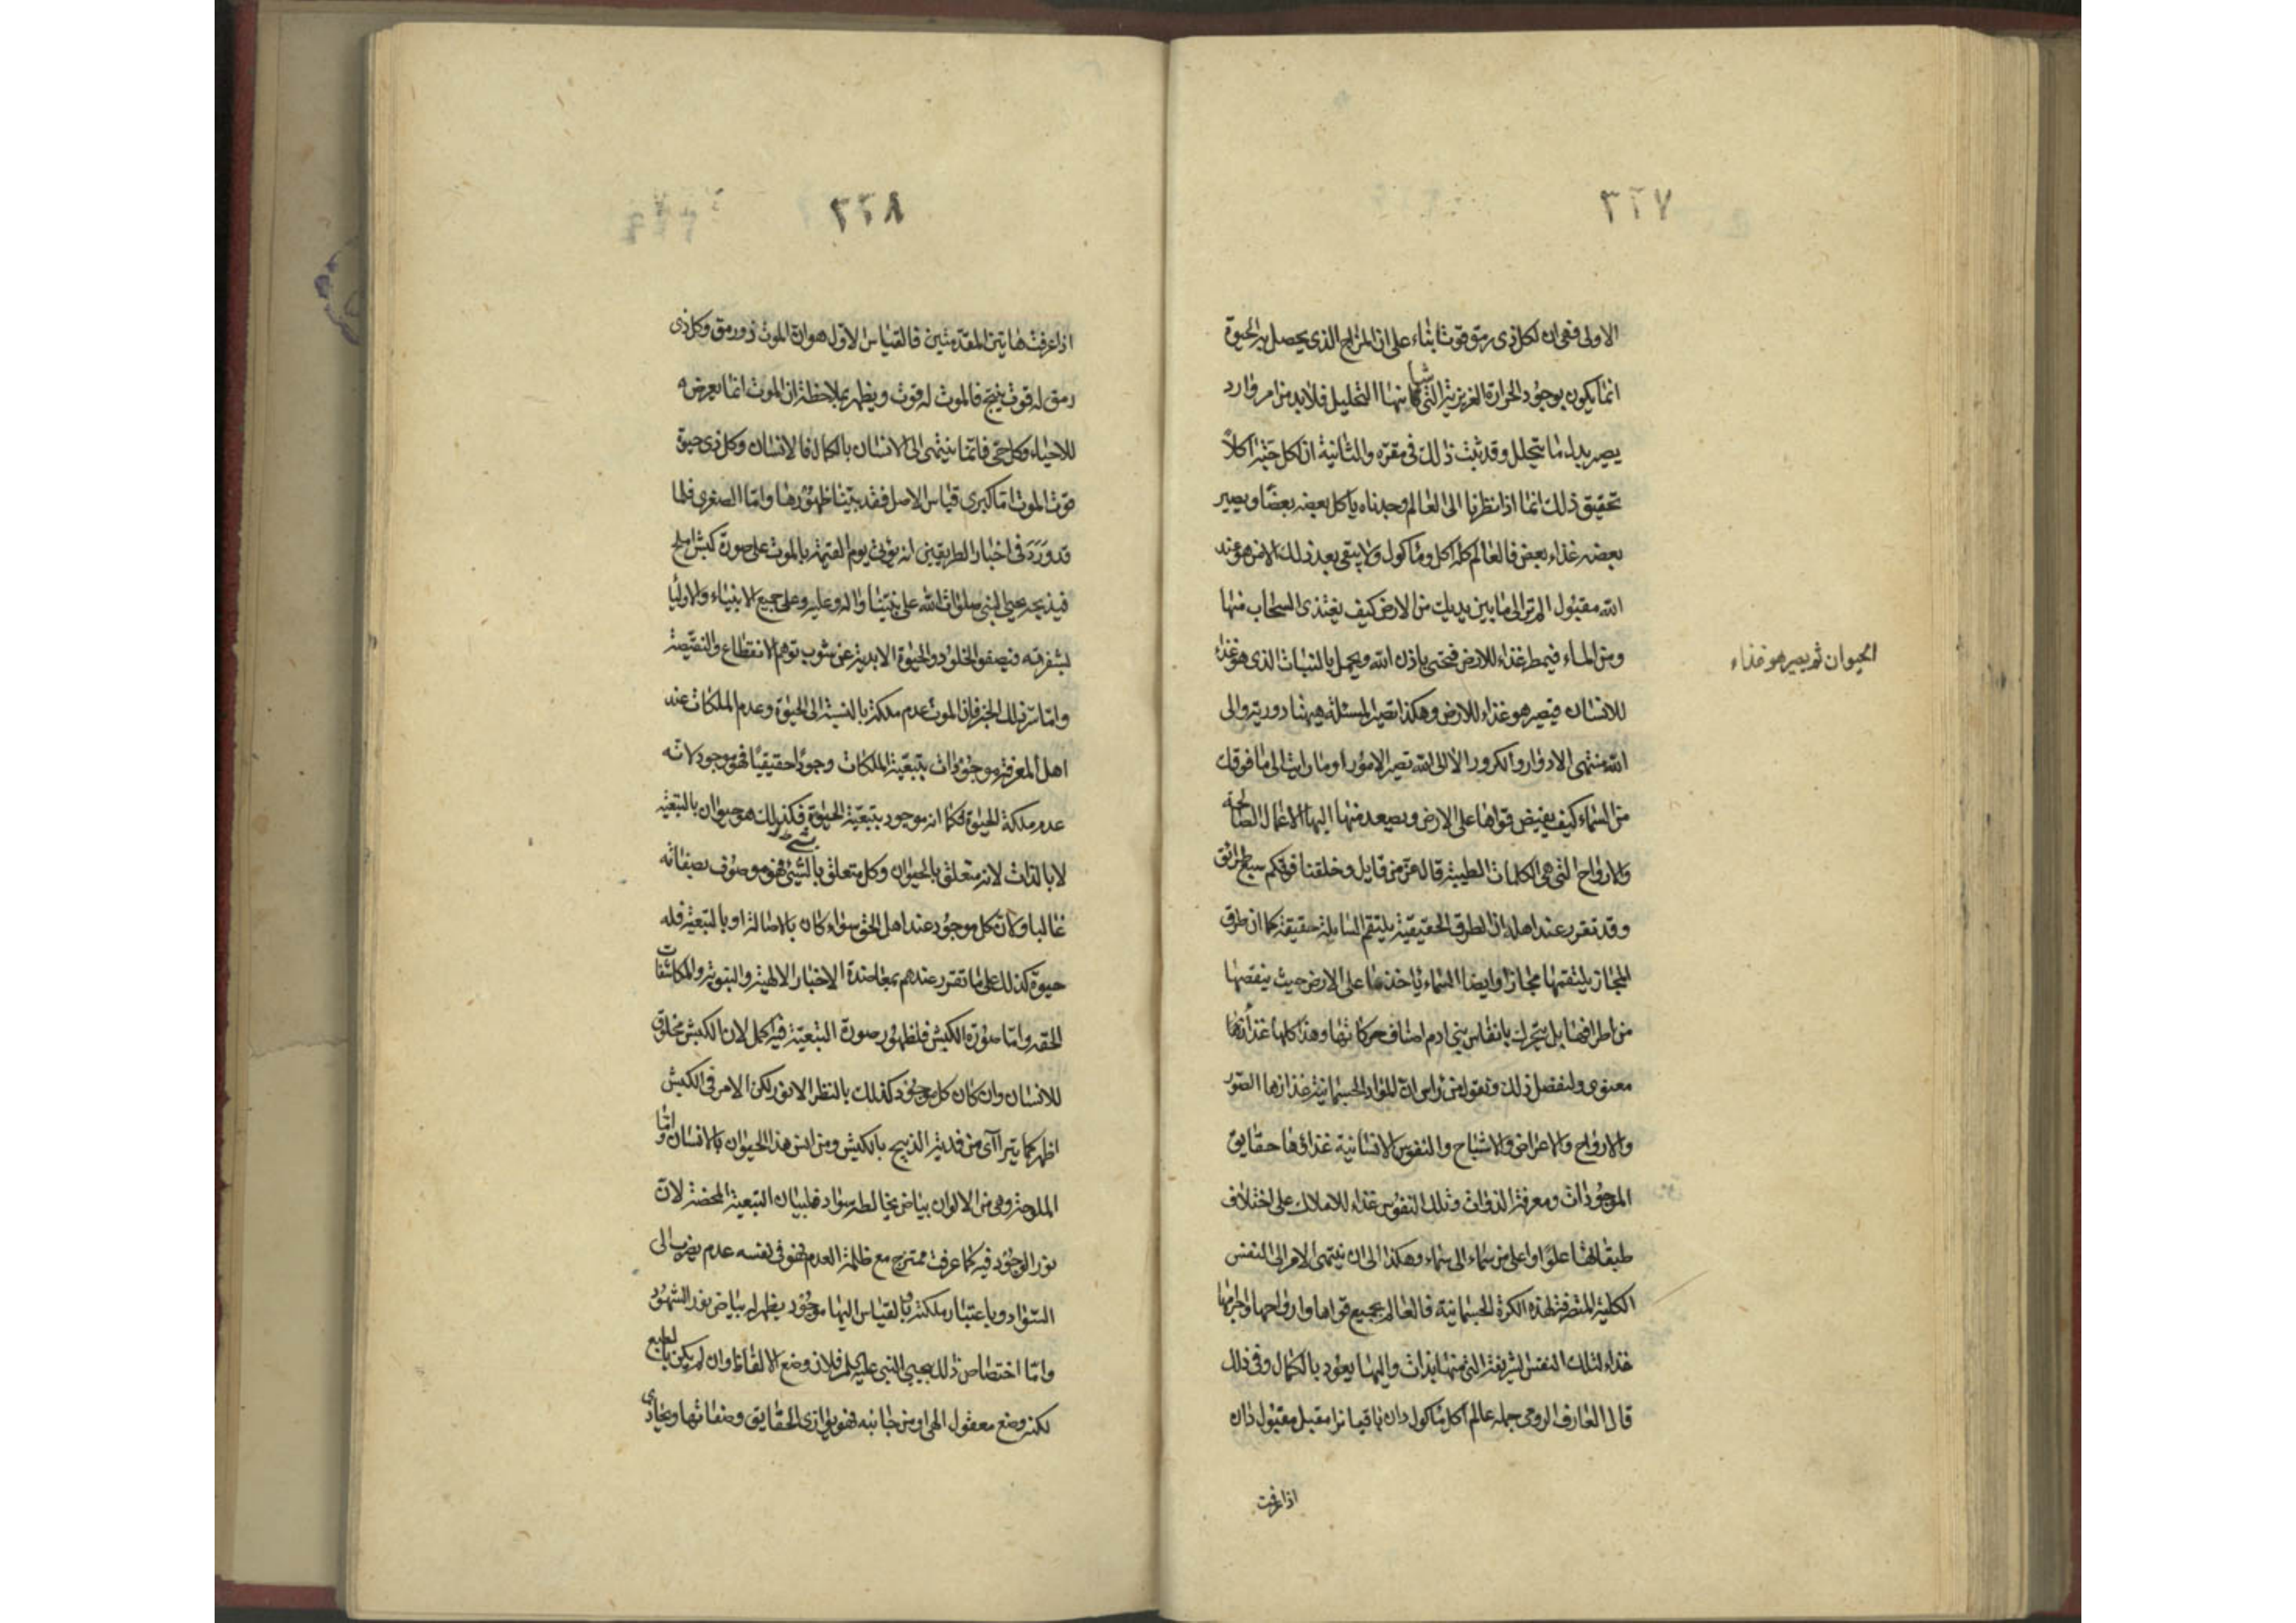 ٣٢٧
الاولى فهى ان لكل ذى رمق قوتا بناء على ان المزاج الذى يحصل به الحيوة
انما يكون بوجود الحرارة الغريزية التى شانها التحليل فلابد من امر وارد
يصير بدل ما يتحلل وقد ثبت ذلك فى مقره والثانية ان لكل حى آكلا
تحقيق ذلك انما اذا نظرنا الى العالم وجدناه ياكل بعضه بعضا ويصير
بعضه غذاء بعض فالعالم كله آكل وماكول ولا يبقى بعد ذلك الا من هو عند
الله مقبول الم تر الى ما بين يديك من الارض كيف يغتذى السحاب منها
ومن الماء فيمطر غذاء للارض فتحيى باذن الله ويحمل بالنبات الذى هو غذاء
الحيوان ثم يصير هو غذاء
للانسان فيصير هو غذاء للارض وهكذا تصير المسئلة ههنا دورية والى
الله منتهى الادوار والكرور الا الى الله تصير الامور او ما رايت الى ما فوقك
من السماء كيف يفيض قواها على الارض ويصعد منها اليها الاعمال الصالحة
والارواح التى هى الكلمات الطيبة قال عز من قايل وخلقنا فوقكم سبع طرائق
وقد تقرر عند اهله ان الطرق الحقيقية يلتقم السابلة حقيقة كما ان طرق
المجاز يلتقمها مجازا وايضا السماء ياخذ ما على الارض حيث ينقصها
من اطرافها بل يتحرك بانفاس بنى ادم اصناف حركاتها وهذا كلها غذاؤها
معنوى ولنفصل ذلك ونقول من راس ان المواد الجسمانية غذاؤها الصور
والارواح والاعراض والاشباح والنفوس الانسانية غذاؤها حقايق
الموجودات ومعرفة الذوات وتلك النفوس غذاء للاملاك على اختلاف
طبقاتها علوا واعلى من سماء الى سماء وهكذا الى ان ينتهى الامر الى النفس
الكلية المتصرفة لهذه الكرة الجسمانية فالعالم بجميع قواها وارواحها واجرامها
غذاء لتلك النفس الشريفة التى منها بدات واليها يعود بالكمال وفى ذلك
قال العارف الرومى جمله عالم آكل وماكول دان باقيانرا مقبل مقبول دان
اذا عرفت
٣٢٨
اذا عرفت هاتين المقدمتين فالقياس الاول هو ان الموت ذو رمق وكل ذى
رمق له قوت ينتج فالموت له قوت ويظهر بملاحظة ان الموت انما يعرض
للاحياء وكل حى فانما ينتهى الى الانسان بالكمال فالانسان وكل ذى حيوة
قوت الموت اما كبرى قياس الاصل فقد بينا ظهورها واما الصغرى فلما
قد ورد فى اخبار الطريقين انه يؤتى يوم القيمة بالموت على صورة كبش املح
فيذبحه يحيى النبى صلوات الله على نبينا واله وعليه وعلى جميع الانبياء والاوليا
بشفرته فيصفو الخلود والحيوة الابدية عن شوب توهم الانقطاع والنقيصة
واما سر ذلك الخبر فان الموت عدم ملكة بالنسبة الى الحيوة وعدم الملكات عند
اهل المعرفة موجودات بتبعية الملكات وجودا حقيقيا فهو موجود لانه
عدم ملكة الحيوة فكما انه موجود بتبعية الحيوة فكذلك هو حيوان بالتبعية
لا بالذات لانه متعلق بالحيوان وكل متعلق بالشىء فهو موصوف بصفاته
غالبا ولان كل موجود عند اهل الحق سواء كان بالاصالة او بالتبعية فله
حيوة كذلك على ما تقرر عندهم بمعاضدة الاخبار الالهية والنبوية والمكاشفات
الحقه واما صورة الكبش فلظهور صورة التبعية فيه اكمل لان الكبش مخلوق
للانسان وان كان كل موجود كذلك بالنظر الانور لكن الامر فى الكبش
اظهر كما يترآى من فدية الذبيح بالكبش ومن انس هذا الحيوان بالانسان واما
الملوحة وهى من الالوان بياض يخالطه سواد فلبيان التبعية المحضة لان
نور الوجود فيه كما عرفت ممتزج مع ظلمة العدم فهو فى نفسه عدم يضرب الى
السواد وباعتبار ملكته وبالقياس اليها موجود يظهر له بياض نور الشهود
واما اختصاص ذلك بيحيى النبى عليه السلم فلان وضع الالفاظ وان لم يكن بالطبع
لكنه وضع معقول الهى ومن جانبه فهو يوازى الحقايق وصفاتها ويحاذى